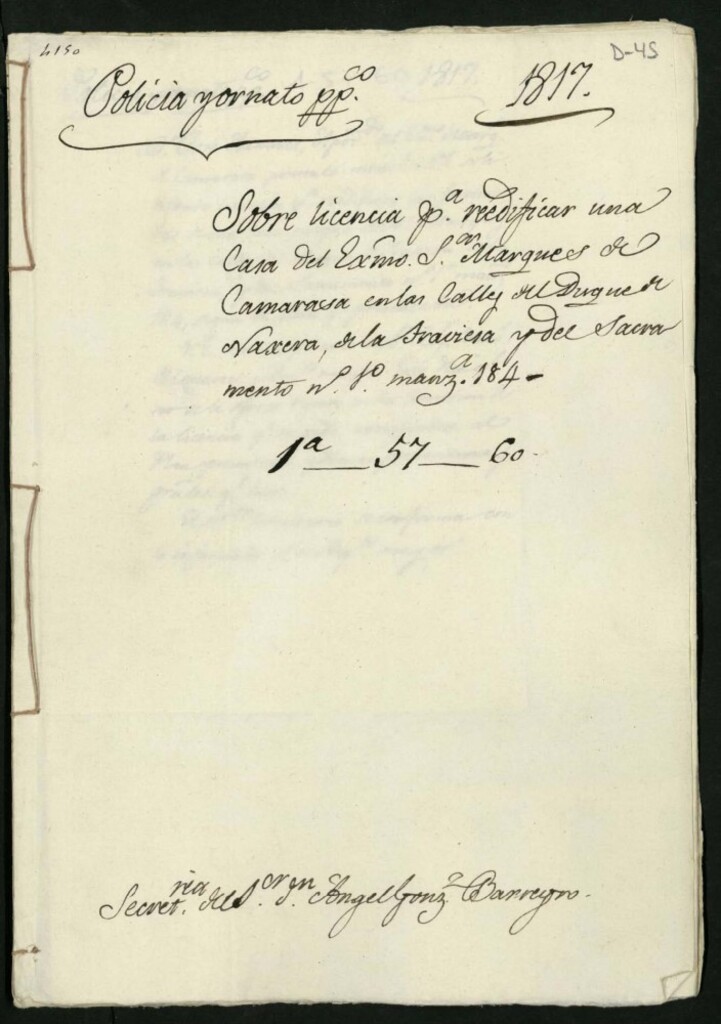 4150
D-45
Policia y ornato pp.co 1817.
Sobre licencia p.a reedificar una
Casa del Exmo. S.or Marques de
Camarassa en las Calles del Duque de
Naxera, de la traviesa y del Sacra
mento n.o 1.o manz.a 184 -
1a __ 57 __ 60.
Secret.ria del S.or d.n Angel Gonz.z Barreyro.